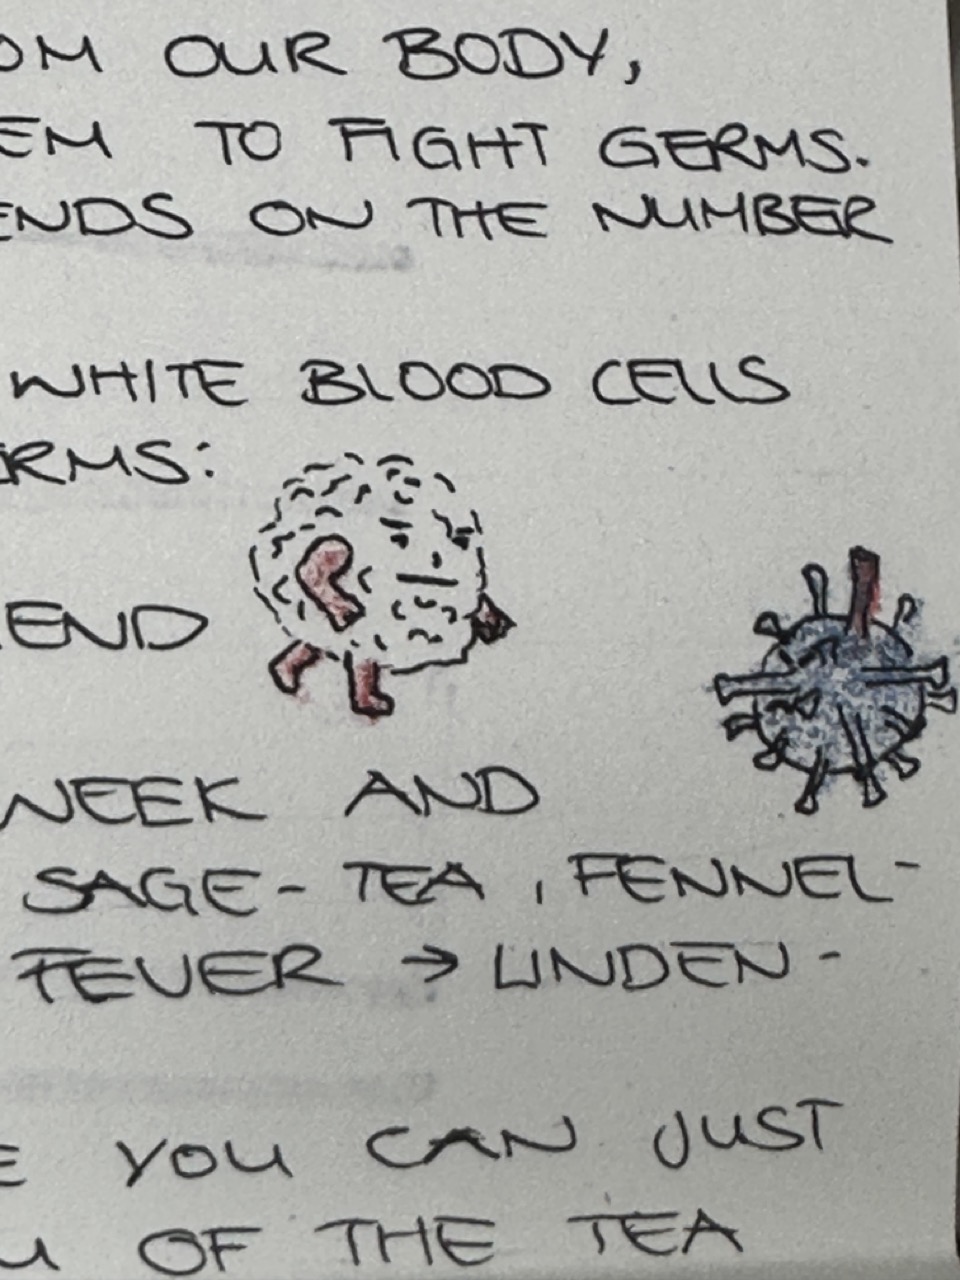 OM OUR BODY,
EM TO FIGHT GERMS.
ENDS ON THE NUMBER
WHITE BLOOD CELLS
ERMS:
END
WEEK AND
SAGE - TEA, FENNEL-
FEVER → LINDEN -
E YOU CAN JUST
OF THE TEA